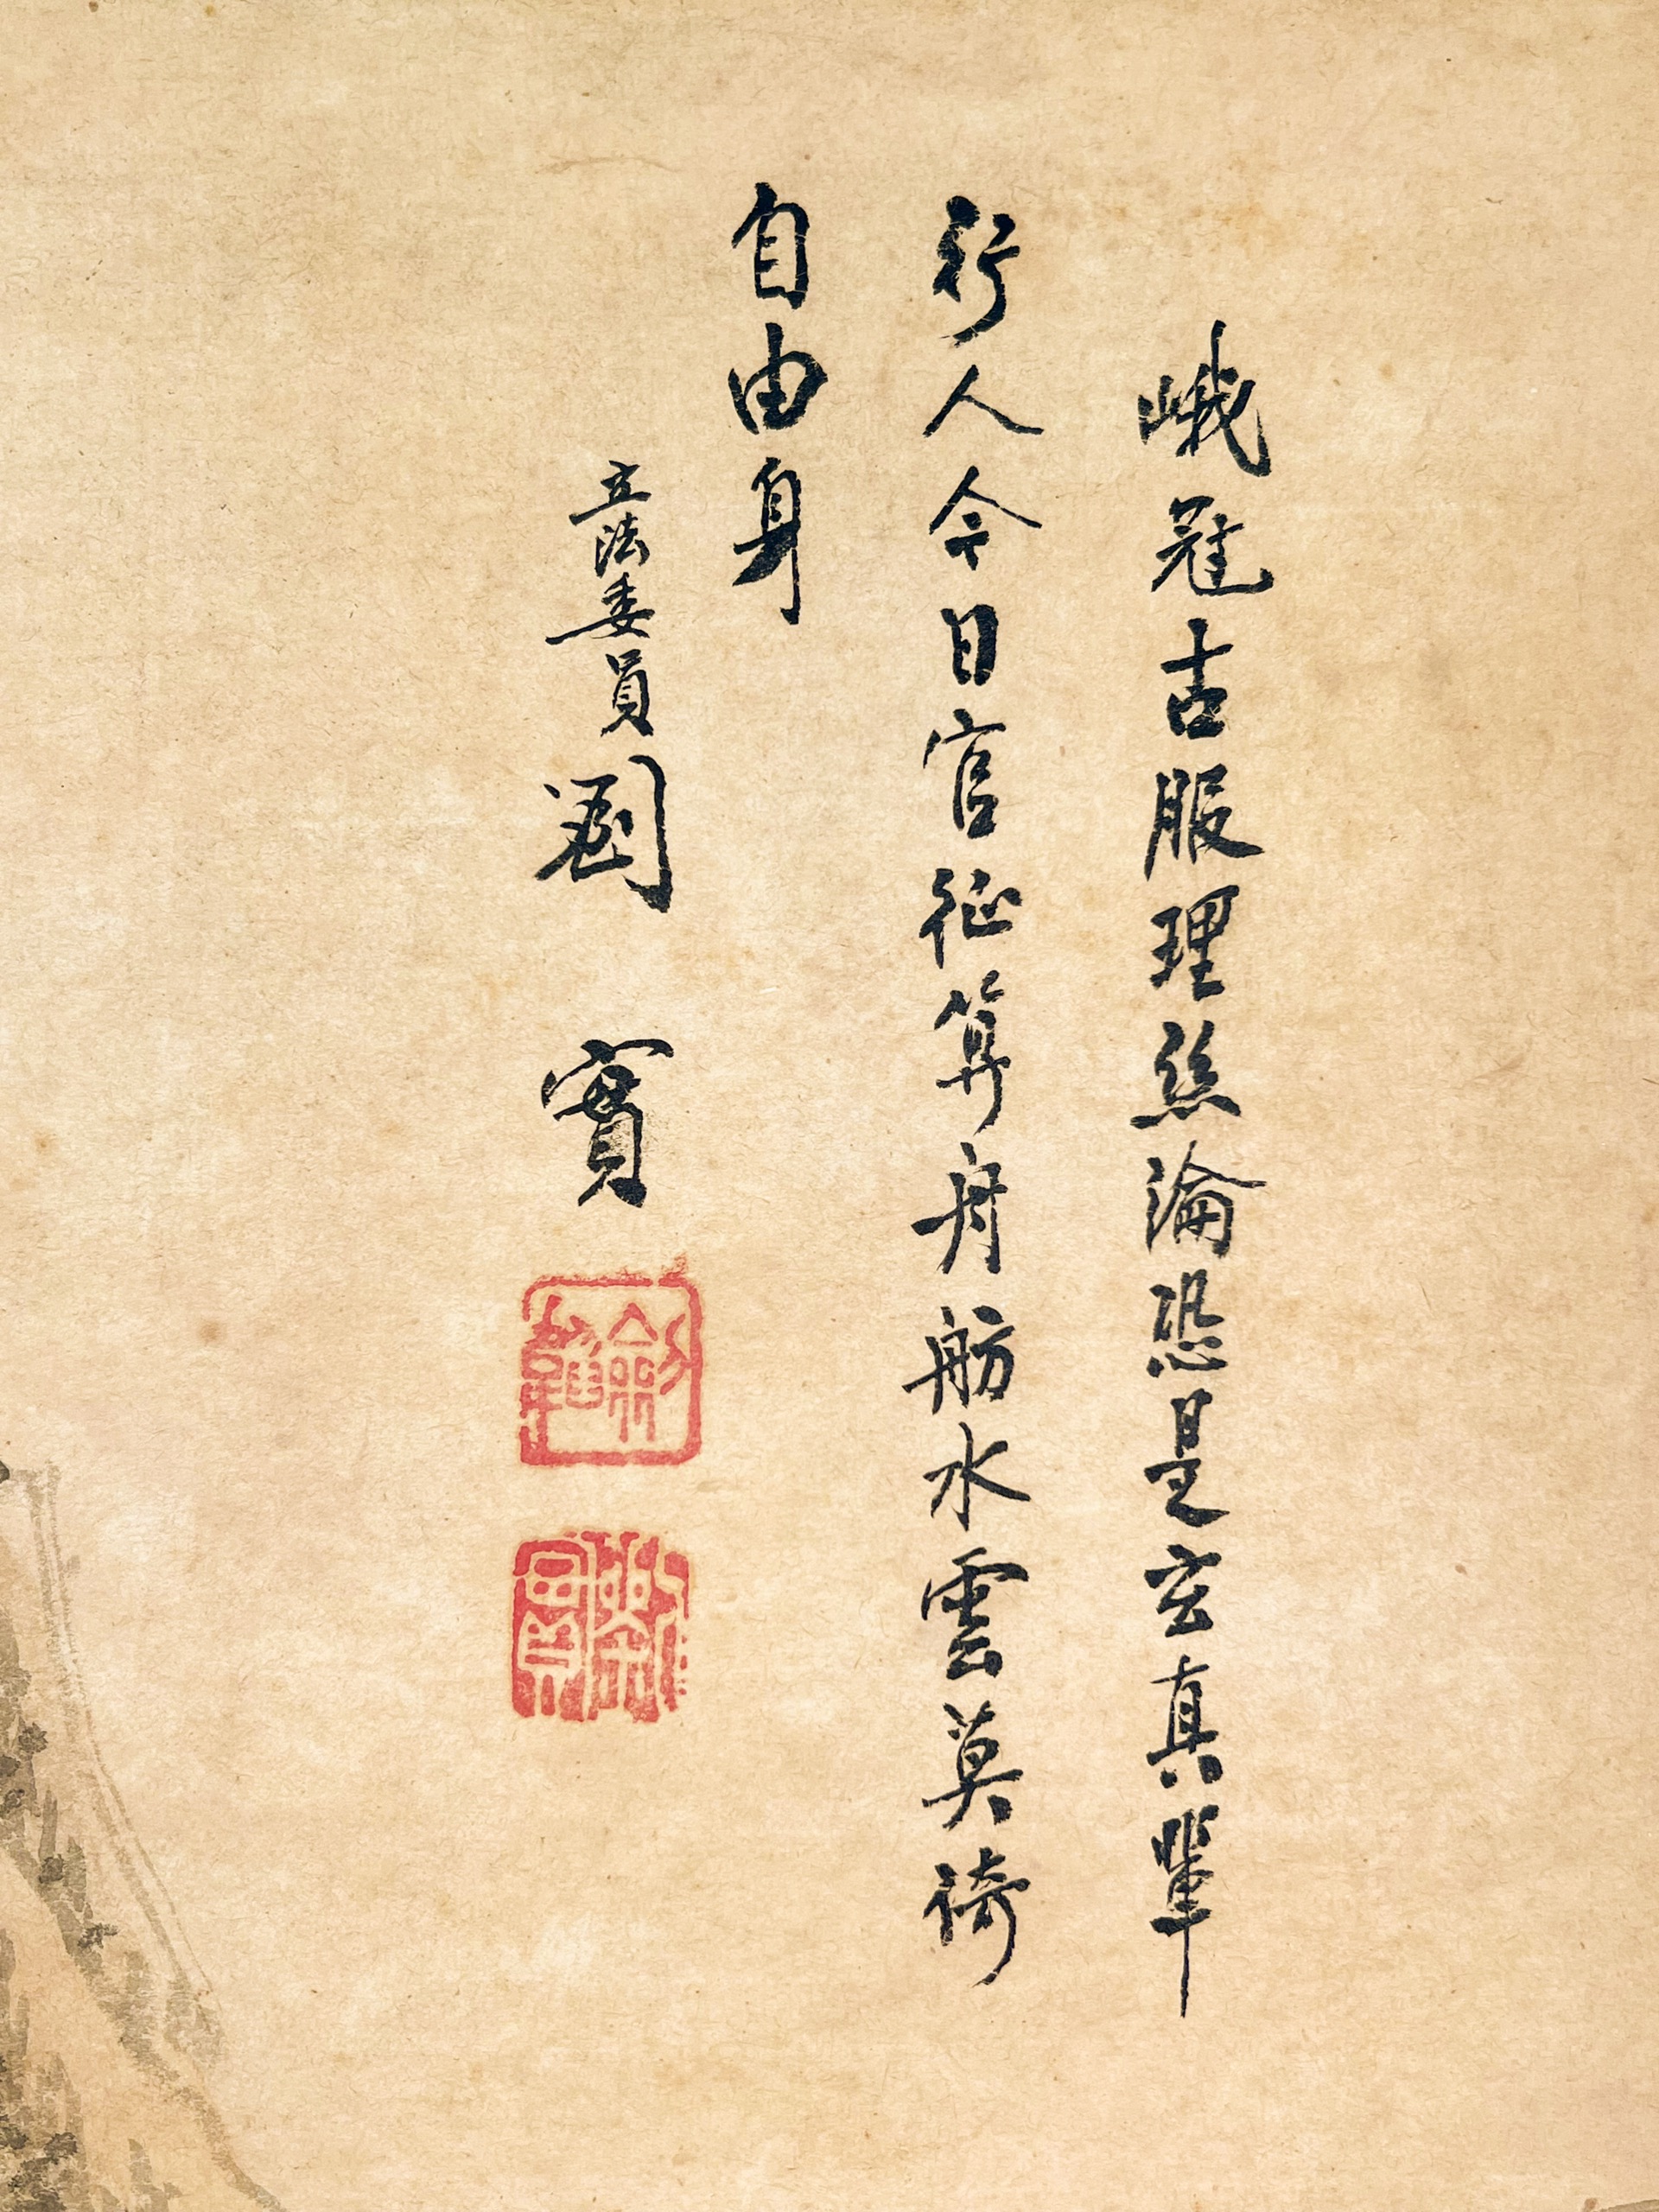 峨冠古服理絲淪恐是玄真輩
行人今日官征算舟舫水雲莫倚
自由身
立法委員劉　實